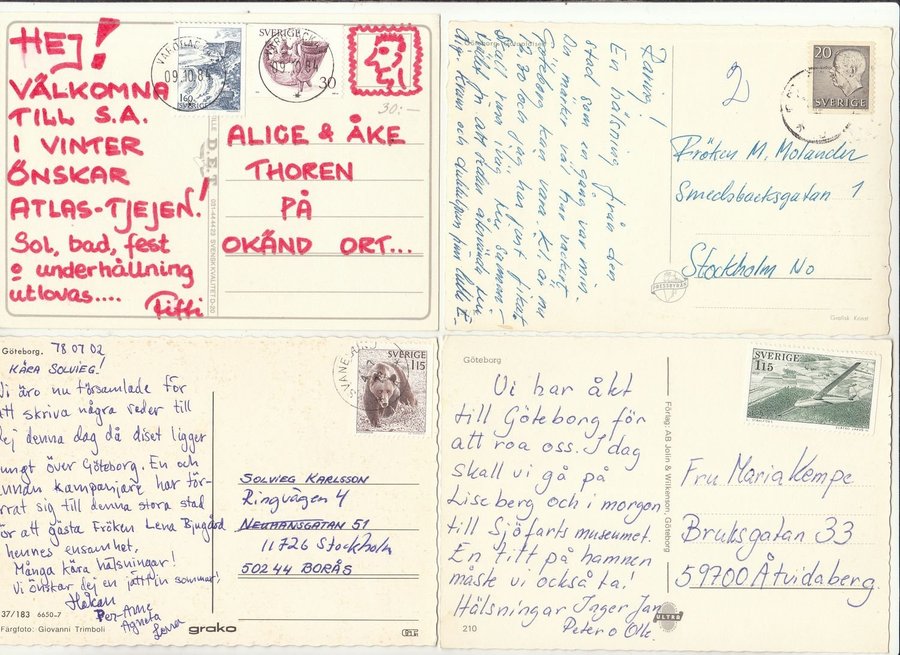 HEJ!
VÄLKOMNA
TILL S.A.
I VINTER
ÖNSKAR
ATLAS-TJEJEN!
Sol, bad, fest
o underhållning
utlovas....
Piffi
09.10.84
160
SVERIGE
SVERIGE
30
30:-
D.E.T
031-444423 SVENSK KVALITET D-20
ALICE & ÅKE
THOREN
PÅ
OKÄND ORT...
Göteborg
En hälsning från den
stad som en gång var min.
Du märker väl hur vackert
Göteborg kan vara. Kl. är nu
och jag har just fikat
2
20
SVERIGE
Fröken M. Molander
Smedsbacksgatan 1
Stockholm No
PRESSBYRÅN
Grafisk Konst
Göteborg. 78 07 02
KÄRA SOLVIEG!
Vi äro nu församlade för
att skriva några rader till
dej denna dag då diset ligger
tungt över Göteborg. En och
annan kampanjare har för-
rrat sig till denna stora stad
för att gästa Fröken Lena Bjugård
i hennes ensamhet.
Många kära hälsningar!
Vi önskar dej en jättfin sommar!
Håkan
Per-Arne
Agneta
Lena
37/183 6650-7
Färgfoto: Giovanni Trimboli
grako
SVERIGE
115
SOLVIEG KARLSSON
Ringvägen 4
NEUMANSGATAN 51
11726 Stockholm
502 44 BORÅS
Göteborg
Vi har åkt
till Göteborg för
att roa oss. I dag
skall vi gå på
Liseberg och i morgon
till Sjöfartsmuseumet.
En titt på hamnen
måste vi också ta!
Hälsningar Inger Jan
Peter o Olle.
210
Förlag: AB Jolin & Wilkenson, Göteborg
ULTRA
SVERIGE
115
Fru Maria Kempe
Bruksgatan 33
59700 Åtvidaberg